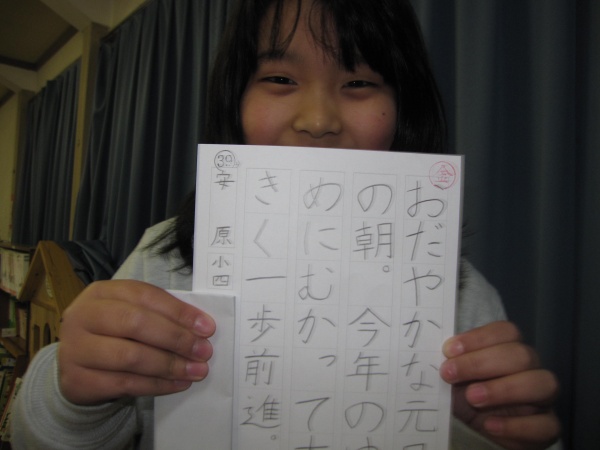 おだやかな元
の朝。今年の
めにむかって
きく一歩前進。
安原小四
30
金